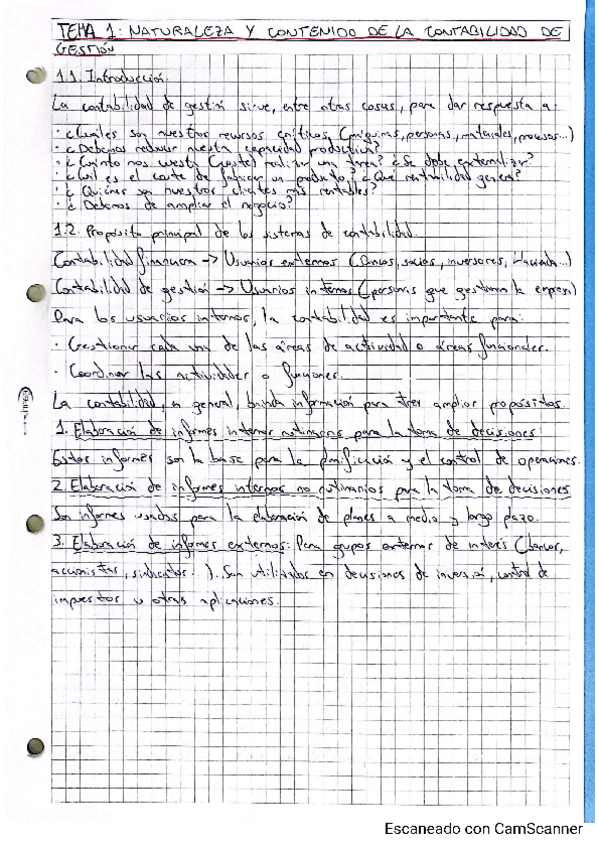 TEMA 1: NATURALEZA Y CONTENIDO DE LA CONTABILIDAD DE
GESTIÓN
1.1. Introducción.
La contabilidad de gestión sirve, entre otras cosas, para dar respuesta a:
· ¿Cuáles son nuestros recursos críticos (máquinas, personas, materiales, procesos...)
· ¿Debemos reducir nuestra capacidad productiva?
· ¿Cuánto nos cuesta (coste) realizar una tarea? ¿Se debe externalizar?
· ¿Cuál es el coste de fabricar un producto? ¿Qué rentabilidad genera?
· ¿Quiénes son nuestros clientes más rentables?
· ¿Debemos de ampliar el negocio?
1.2. Propósito principal de los sistemas de contabilidad.
Contabilidad financiera -> Usuarios externos (Bancos, socios, inversores, Hacienda...)
Contabilidad de gestión -> Usuarios internos (personas que gestionan la empresa)
Para los usuarios internos, la contabilidad es importante para:
· Gestionar cada una de las áreas de actividad o áreas funcionales.
· Coordinar las actividades o funciones.
La contabilidad, en general, brinda información para tres amplios propósitos.
1. Elaboración de informes internos rutinarios para la toma de decisiones:
Estos informes son la base para la planificación y el control de operaciones.
2. Elaboración de informes internos no rutinarios para la toma de decisiones
Son informes usados para la elaboración de planes a medio y largo plazo.
3. Elaboración de informes externos: Para grupos externos de interés (bancos,
accionistas, sindicatos...). Son utilizados en decisiones de inversión, control de
impuestos u otras aplicaciones.
Escaneado con CamScanner